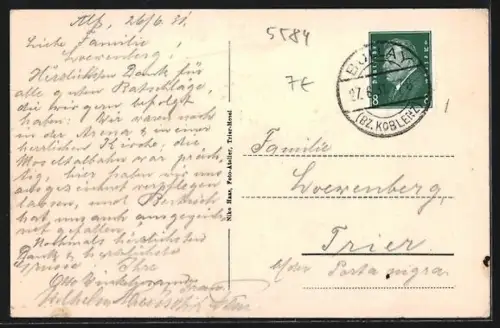 Alf, 26/6. 31.
Liebe Familie
Loewenberg!
Herzlichsten Dank für
alle guten Ratschläge,
die wir gern befolgt
haben. Wir waren noch
in der Arena & in einer
herrlichen Kirche; die
Moseltalbahn war präch-
tig, hier haben wir uns
ausgezeichnet verpflegen
lassen, und Bertrich
hat uns auch ausgezeich-
net gefallen.
Nochmals herzlichsten
Dank & herzlichste
Grüsse Ihre
Otto
Wilhelm
Nike Haas, Foto-Atelier, Trier-Mosel
5584
7€
BULLAY
27.6.31
(BZ. KOBLENZ)
8
Familie
Loewenberg,
Trier
b/der Porta nigra.